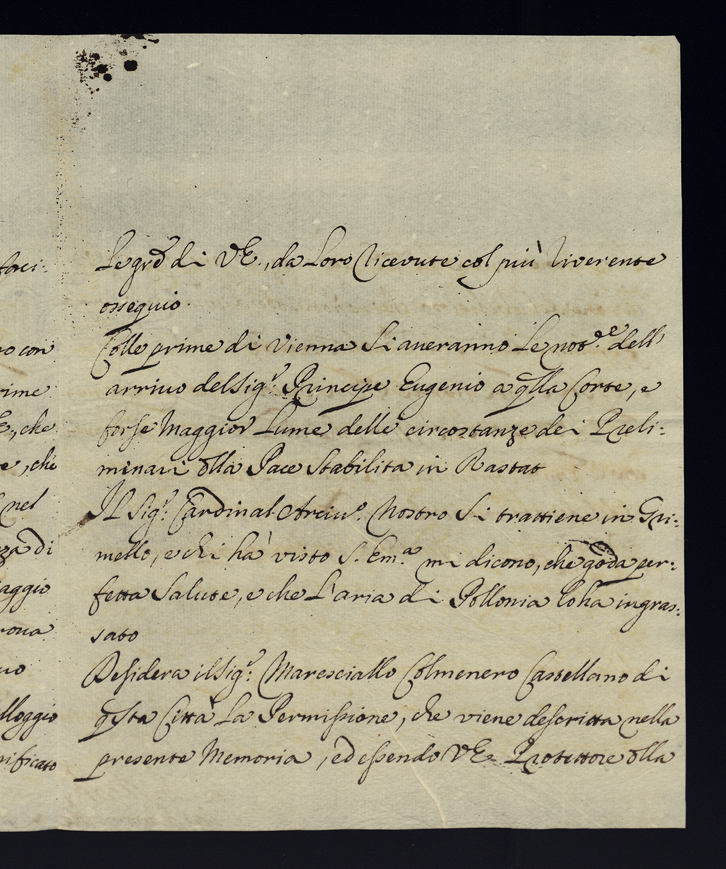 faci:
no con
rime
E, che
e, che
nel
za di
aggio
rova
no
lloggio
rificato
Le grẽ di VE., da Loro ricevute col più riverente
ossequio.
Colle prime di Vienna si averanno Le not.e dell'
arrivo del Sig.r Principe Eugenio a qlla Corte, e
forse Maggior Lume delle circostanze de i Preli:
minari dlla Pace stabilita in Rastat
Il Sig.r Cardinal Arciv.o Nostro si trattiene in Gru:
mello, e chi ha' visto S. Em.a mi dicono, che goda per:
fetta Salute, e che L'aria di Pollonia lo ha ingras:
sato
Desidera il Sig.r Maresciallo Colmenero Castellano di
qsta Città La Permissione, che viene descritta nella
presente Memoria, ed essendo VE. Protettore dlla